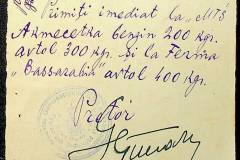 Primiți imediat la „MTS
Akmecetka benzin 200 kgr.
avtol 300 kgr. și la Ferma
„Bassarabia” avtol 400 kgr.
Pretor